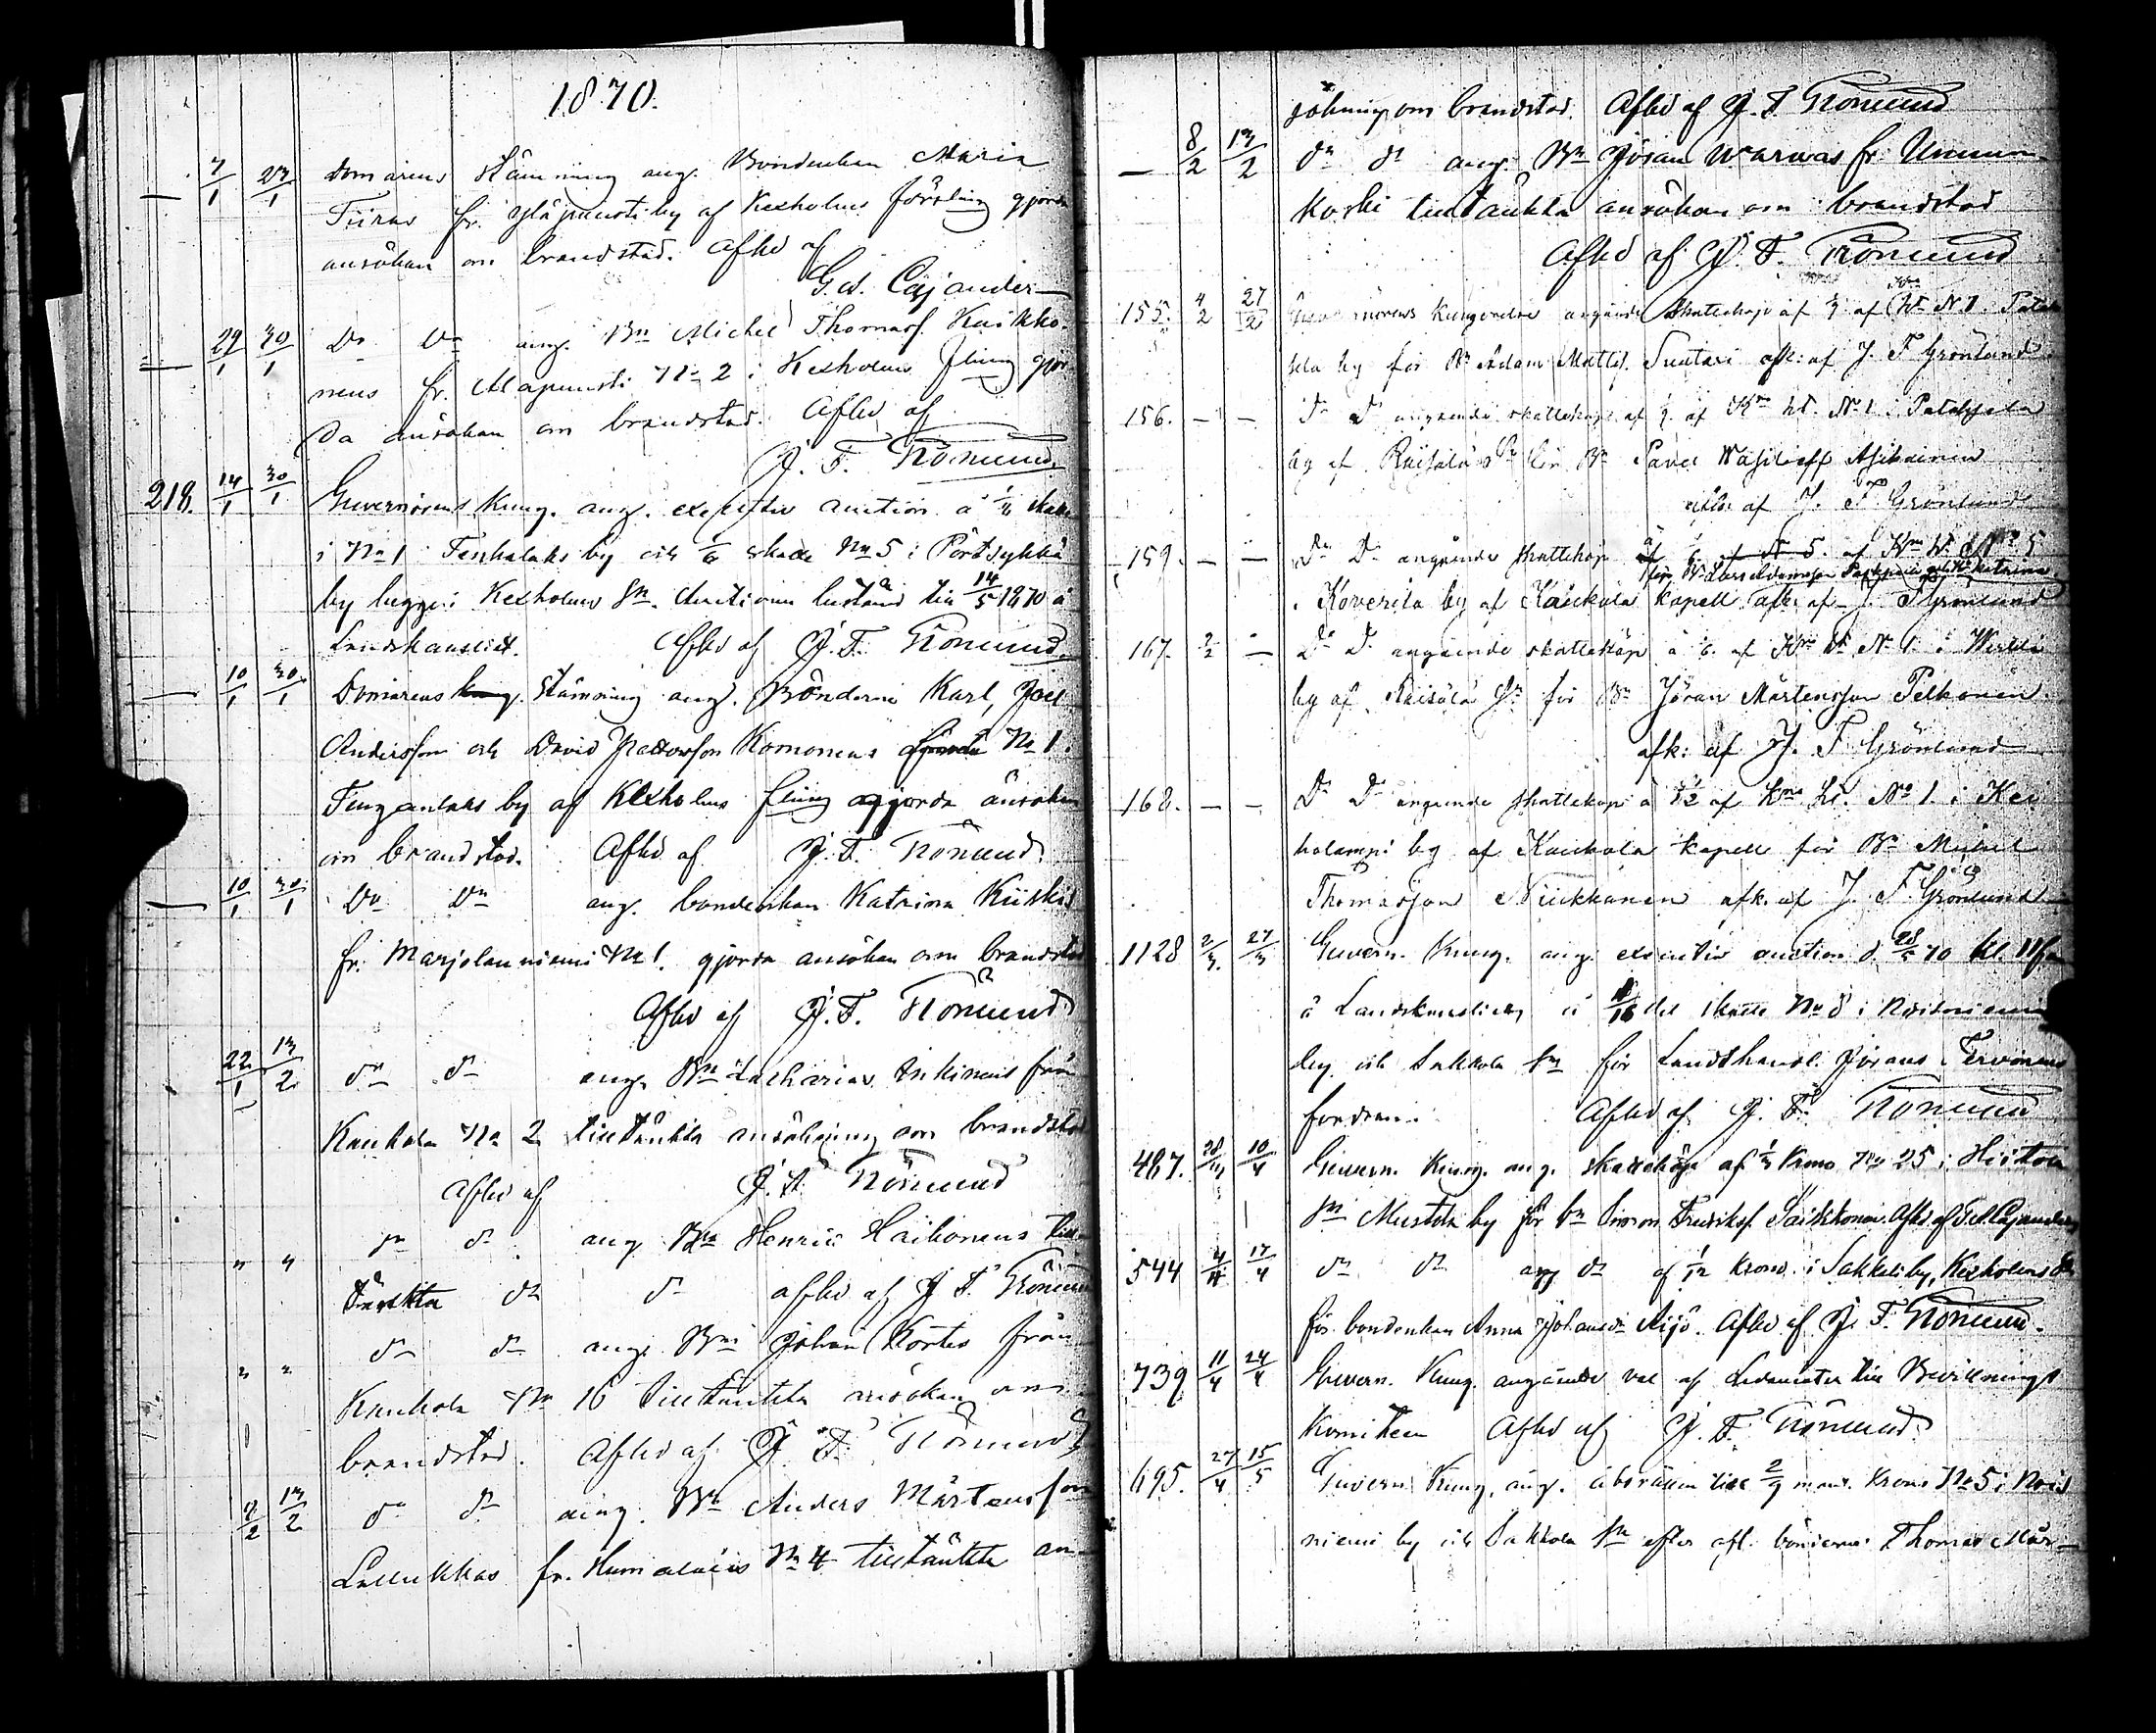 1870.
— 7/1 23/1 Domarens stämning ang. Bondenkan Maria
Tiiras fr. Yläpuusti by af Kexholms försling gjorda
ansökan om brandstod. Afkd af
G. A. Cajander
— 29/1 30/1 Do Do ang. Bn Michel Thomasf. Kuikko-
nens fr. Alapuusti No 2 i Kexholms fling gjor
da ansökan om brandstod. Afkd af
J. F. Grönlund
218. 14/1 30/1 Guvernörens Kung. ang. exekutiv auction å skatte
i No 1 Tenkalaks by och 1/6 skatte No 5 i Pörtsykkä
by lugge i Kexholms Sn. Auctionen 14/5 1870 å
Landskansliet. Afkd af J. F. Grönlund
— 10/1 30/1 Domarens Stämning ang. Bönderne Karl, Joel
Andersson och David Komonens No 1.
Tenganlaks by af Kexholms fling gjorda ansökan
om brandstod. Afkd af J. F. Grönlund
— 10/1 30/1 Do Do ang. bondenkan Katrina Kiiskis
fr. Marjolanniemi No 1. gjorda ansökan om brandstod
Afkd af J. F. Grönlund
22/1 13/2 do do ang. Bn Zacharias Inkinens från
Kaukola No 2 tilltänkta ansökning om brandstod
Afkd af J. F. Grönlund
" " do do ang. Bn Henric Haikonens till-
tänkta do do afkd af J. F. Grönlund
" " do do ang. Bn Johan Kortes från
Kaukola No 16 tilltänkta ansökan om
brandstod. Afkd af J. F. Grönlund
7/2 13/2 do do ang. Bn Anders Mårtensson
Lallukkas fr. No 4 tilltänkta an-
sökning om brandstod. Afkd af J. F. Grönlund
— 8/2 13/2 do do ang. Bn Jöran Warwas fr. Unnun-
koski tilltänkta ansökan om brandstod
Afkd af J. F. Grönlund
155. 4/2 27/2 Guvernörens Kungörelse angående skatteköp af af No 1.
by för Bn Adam Mattss. Suutari afk. af J. F. Grönlund
156. — — Do Do angående skatteköp af af Kro ht. No 1 i
by af Räisälä Sn för Bn Pavel Wasilieff Asikainen
afk. af J. F. Grönlund
159. — — Do Do angående skatteköp å 1/6. af No 5. af Kro ht. No 5
i Koverila by af Kaukola kapell afk. af J. F. Grönlund
167. 2/2 — Do Do angående skatteköp å 1/6. af Kro ht. No 1. i
by af Räisälä Sn för Bn Jöran Mårtensson Pelkonen
afk: af J. F. Grönlund
168. — — Do Do angående skatteköp å 1/2 af Kro ht. No 1. i Kei
holampi by af Kaukola kapell för Bn Michel
Thomasson Niukkanen afk. af J. F. Grönlund
1128 2/3 27/3 Guvern. Kung. ang. exekutiv auction d. 28/5 70 kl. 11 fm
å Landskansliet å /16 del skatte No 8 i Noisniemi
by och Sakkola Sn för Landthandl. Jörans Tervonens
fordran. Afkd af J. F. Grönlund
487. 28/3 10/4 Guvern. Kung. ang. skatteköp af 1/3 Krono No 25 i Hiitola
Sn Mustola by för bn Simon Fredriksf. Säikkonen. Afkd af G. A. Cajander
544 4/4 17/4 do do ang do af 1/12 Krono i Sakkali by, Kexholms Sn
för bondenkan Anna Johansdr Äijö. Afkd af J. F. Grönlund.
739 11/4 24/4 Guvern. Kung. angående val af Ledamöter till Bevillnings
Komiteen Afkd af J. F. Grönlund
695. 27/4 15/5 Guvern. Kung. ang. åborätten till 2/9 mant. Krono No 5 i Nois
niemi by och Sakkola Sn efter afl. bönderne Thomas Mår-